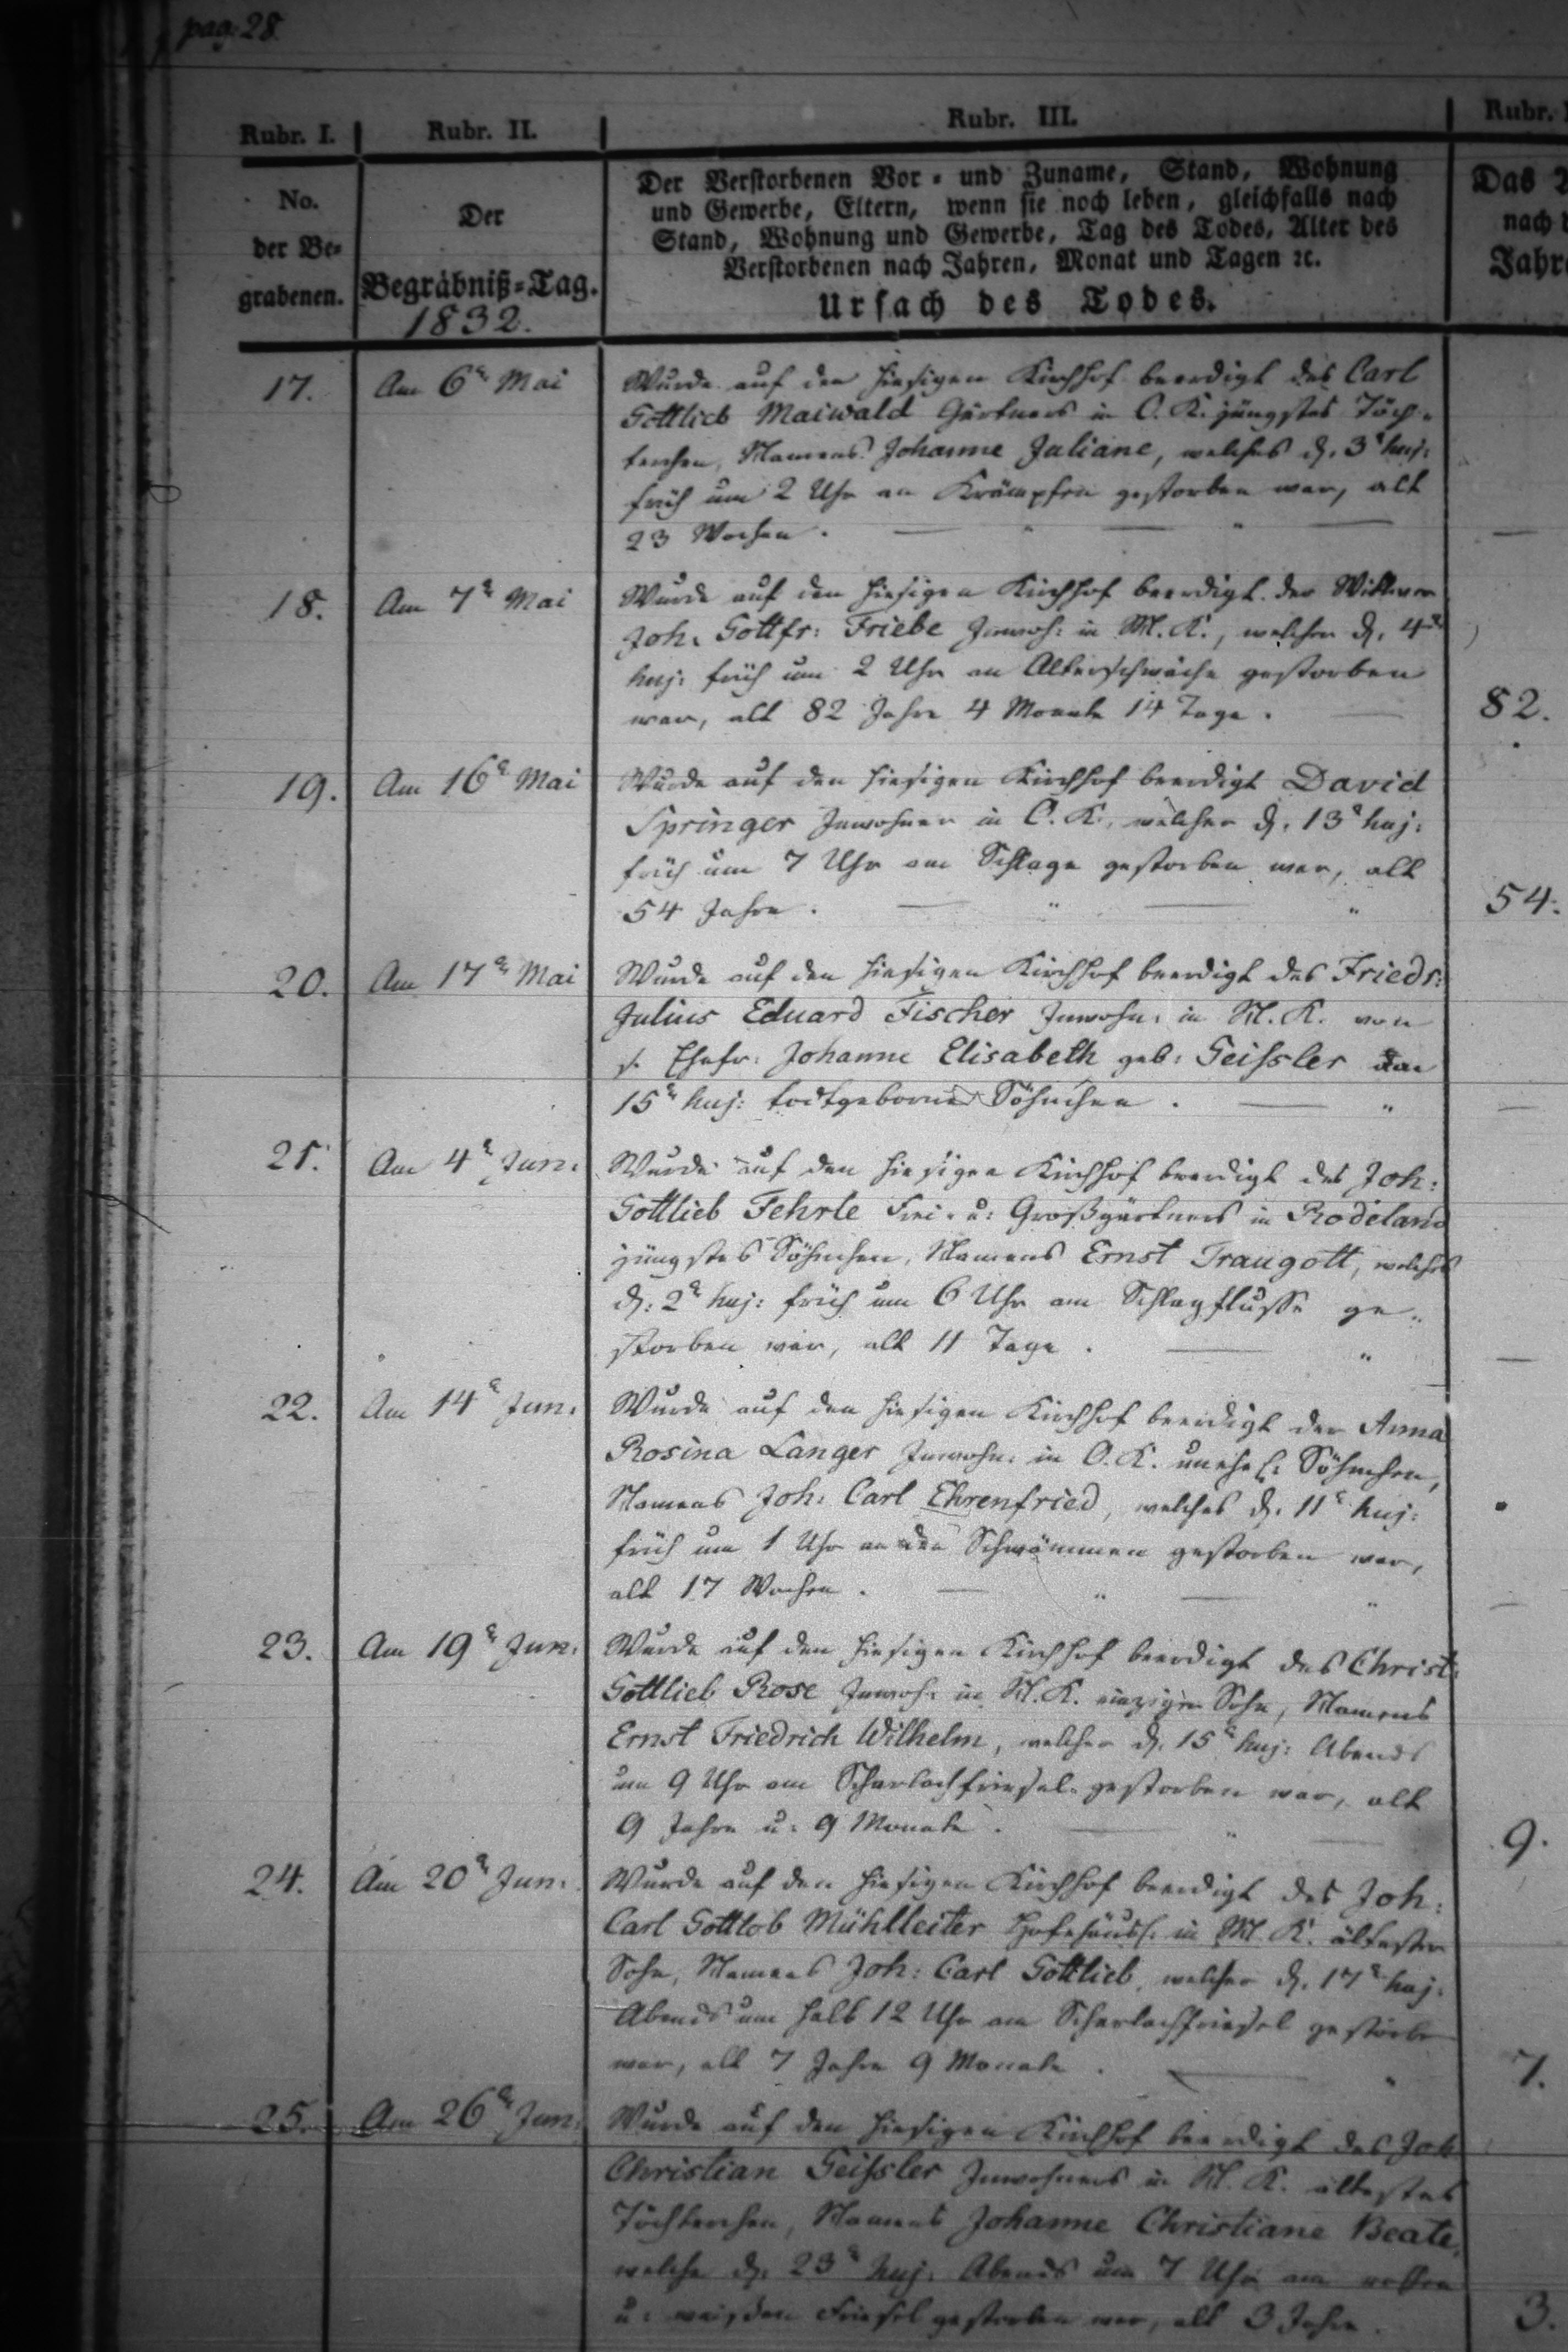 pag: 28
Rubr. I. Rubr. II. Rubr. III. Rubr.
No. der Be-grabenen.
Der Begräbniß-Tag. 1832.
Der Verstorbenen Vor- und Zuname, Stand, Wohnung
und Gewerbe, Eltern, wenn sie noch leben, gleichfalls nach
Stand, Wohnung und Gewerbe, Tag des Todes, Alter des
Verstorbenen nach Jahren, Monat und Tagen ꝛc.
Ursach des Todes.
Das
nach
Jahr
17. Am 6t Mai Wurde auf den hiesigen Kirchhof beerdigt des Carl
Gottlieb Maiwald Gärtners in O. K. jüngstes Töch-
terchen, Namens Johanne Juliane, welches d. 3t huj:
früh um 2 Uhr an Krämpfen gestorben war, alt
23 Wochen.
18. Am 7t Mai Wurde auf den hiesigen Kirchhof beerdigt der Wittwer
Joh. Gottfr: Friebe Inwoh: in M. K., welcher d. 4t
huj: früh um 2 Uhr an Altersschwäche gestorben
war, alt 82 Jahre 4 Monate 14 Tage. 82.
19. Am 16t Mai Wurde auf den hiesigen Kirchhof beerdigt David
Springer Inwohner in O. K., welcher d. 13t huj:
früh um 7 Uhr am Schlage gestorben war, alt
54 Jahre. 54.
20. Am 17t Mai Wurde auf den hiesigen Kirchhof beerdigt des Friedr:
Julius Eduard Fischer Inwohn: in M. K. von
s. Ehefr: Johanne Elisabeth geb: Geißler den
15t huj: todtgeborne Söhnchen.
21. Am 4t Jun: Wurde auf den hiesigen Kirchhof beerdigt des Joh:
Gottlieb Fehrle Frei- u: Großgärtners in Rodeland
jüngstes Söhnchen, Namens Ernst Traugott, welches
d: 2t huj: früh um 6 Uhr am Schlagflusse ge-
storben war, alt 11 Tage.
22. Am 14t Jun: Wurde auf den hiesigen Kirchhof beerdigt der Anna
Rosina Langer Inwohn: in O. K. unehel: Söhnchen,
Namens Joh: Carl Ehrenfried, welches d. 11t huj:
früh um 1 Uhr an den Schwämmen gestorben war,
alt 17 Wochen.
23. Am 19t Jun: Wurde auf den hiesigen Kirchhof beerdigt des Christ:
Gottlieb Rose Inwoh: in M. K. einziger Sohn, Namens
Ernst Friedrich Wilhelm, welcher d. 15t huj: Abends
um 9 Uhr am Scharlachfriesel gestorben war, alt
9 Jahre u: 9 Monate. 9.
24. Am 20t Jun: Wurde auf den hiesigen Kirchhof beerdigt des Joh:
Carl Gottlob Mühlleiter Hofehäusl: in M. K. ältester
Sohn, Namens Joh: Carl Gottlieb, welcher d. 17t huj:
Abends um halb 12 Uhr am Scharlachfriesel gestorben
war, alt 7 Jahre 9 Monate. 7.
25. Am 26t Jun: Wurde auf den hiesigen Kirchhof beerdigt des Joh
Christian Geißler Inwohners in M. K. ältestes
Töchterchen, Namens Johanne Christiane Beate,
welche d. 23t huj: Abends um 7 Uhr am rothen
u: weißen Friesel gestorben war, alt 3 Jahre. 3.